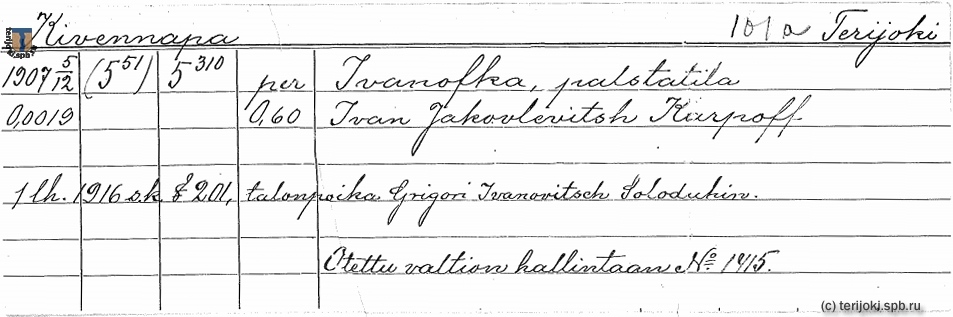 Kivennapa 101a Terijoki
1907 5/12 (5⁵¹) 5³¹⁰ per Ivanofka, palstatila
0,0019 0,60 Ivan Jakovlevitsh Karpoff
1 lh. 1916 s.k. § 201, talonpoika Grigori Ivanovitsch Solodukin.
Otettu valtion hallintaan No 1415.
(c) terijoki.spb.ru